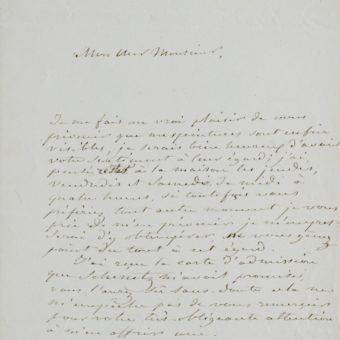 Mon cher Monsieur,
Je me fais un vrai plaisir de vous
prévenir que mes peintures sont enfin
visibles, je serais bien heureux d'avoir
votre sentiment à leur égard; j'ai
à la maison les jeudis,
vendredis et Samedis, de midi à
quatre heures, si toutefois vous
préférez tout autre moment je vous
prie de m'en prévenir, je m'empres-
serai d'y obtempérer ne vous gênez
point du tout à cet égard.
J'ai reçu la carte d'admission
que m'avait promise,
vous l'aurez sans doute cela ne
m'empêche pas de vous remercier
pour votre très obligeante attention
à m'en offrir une.